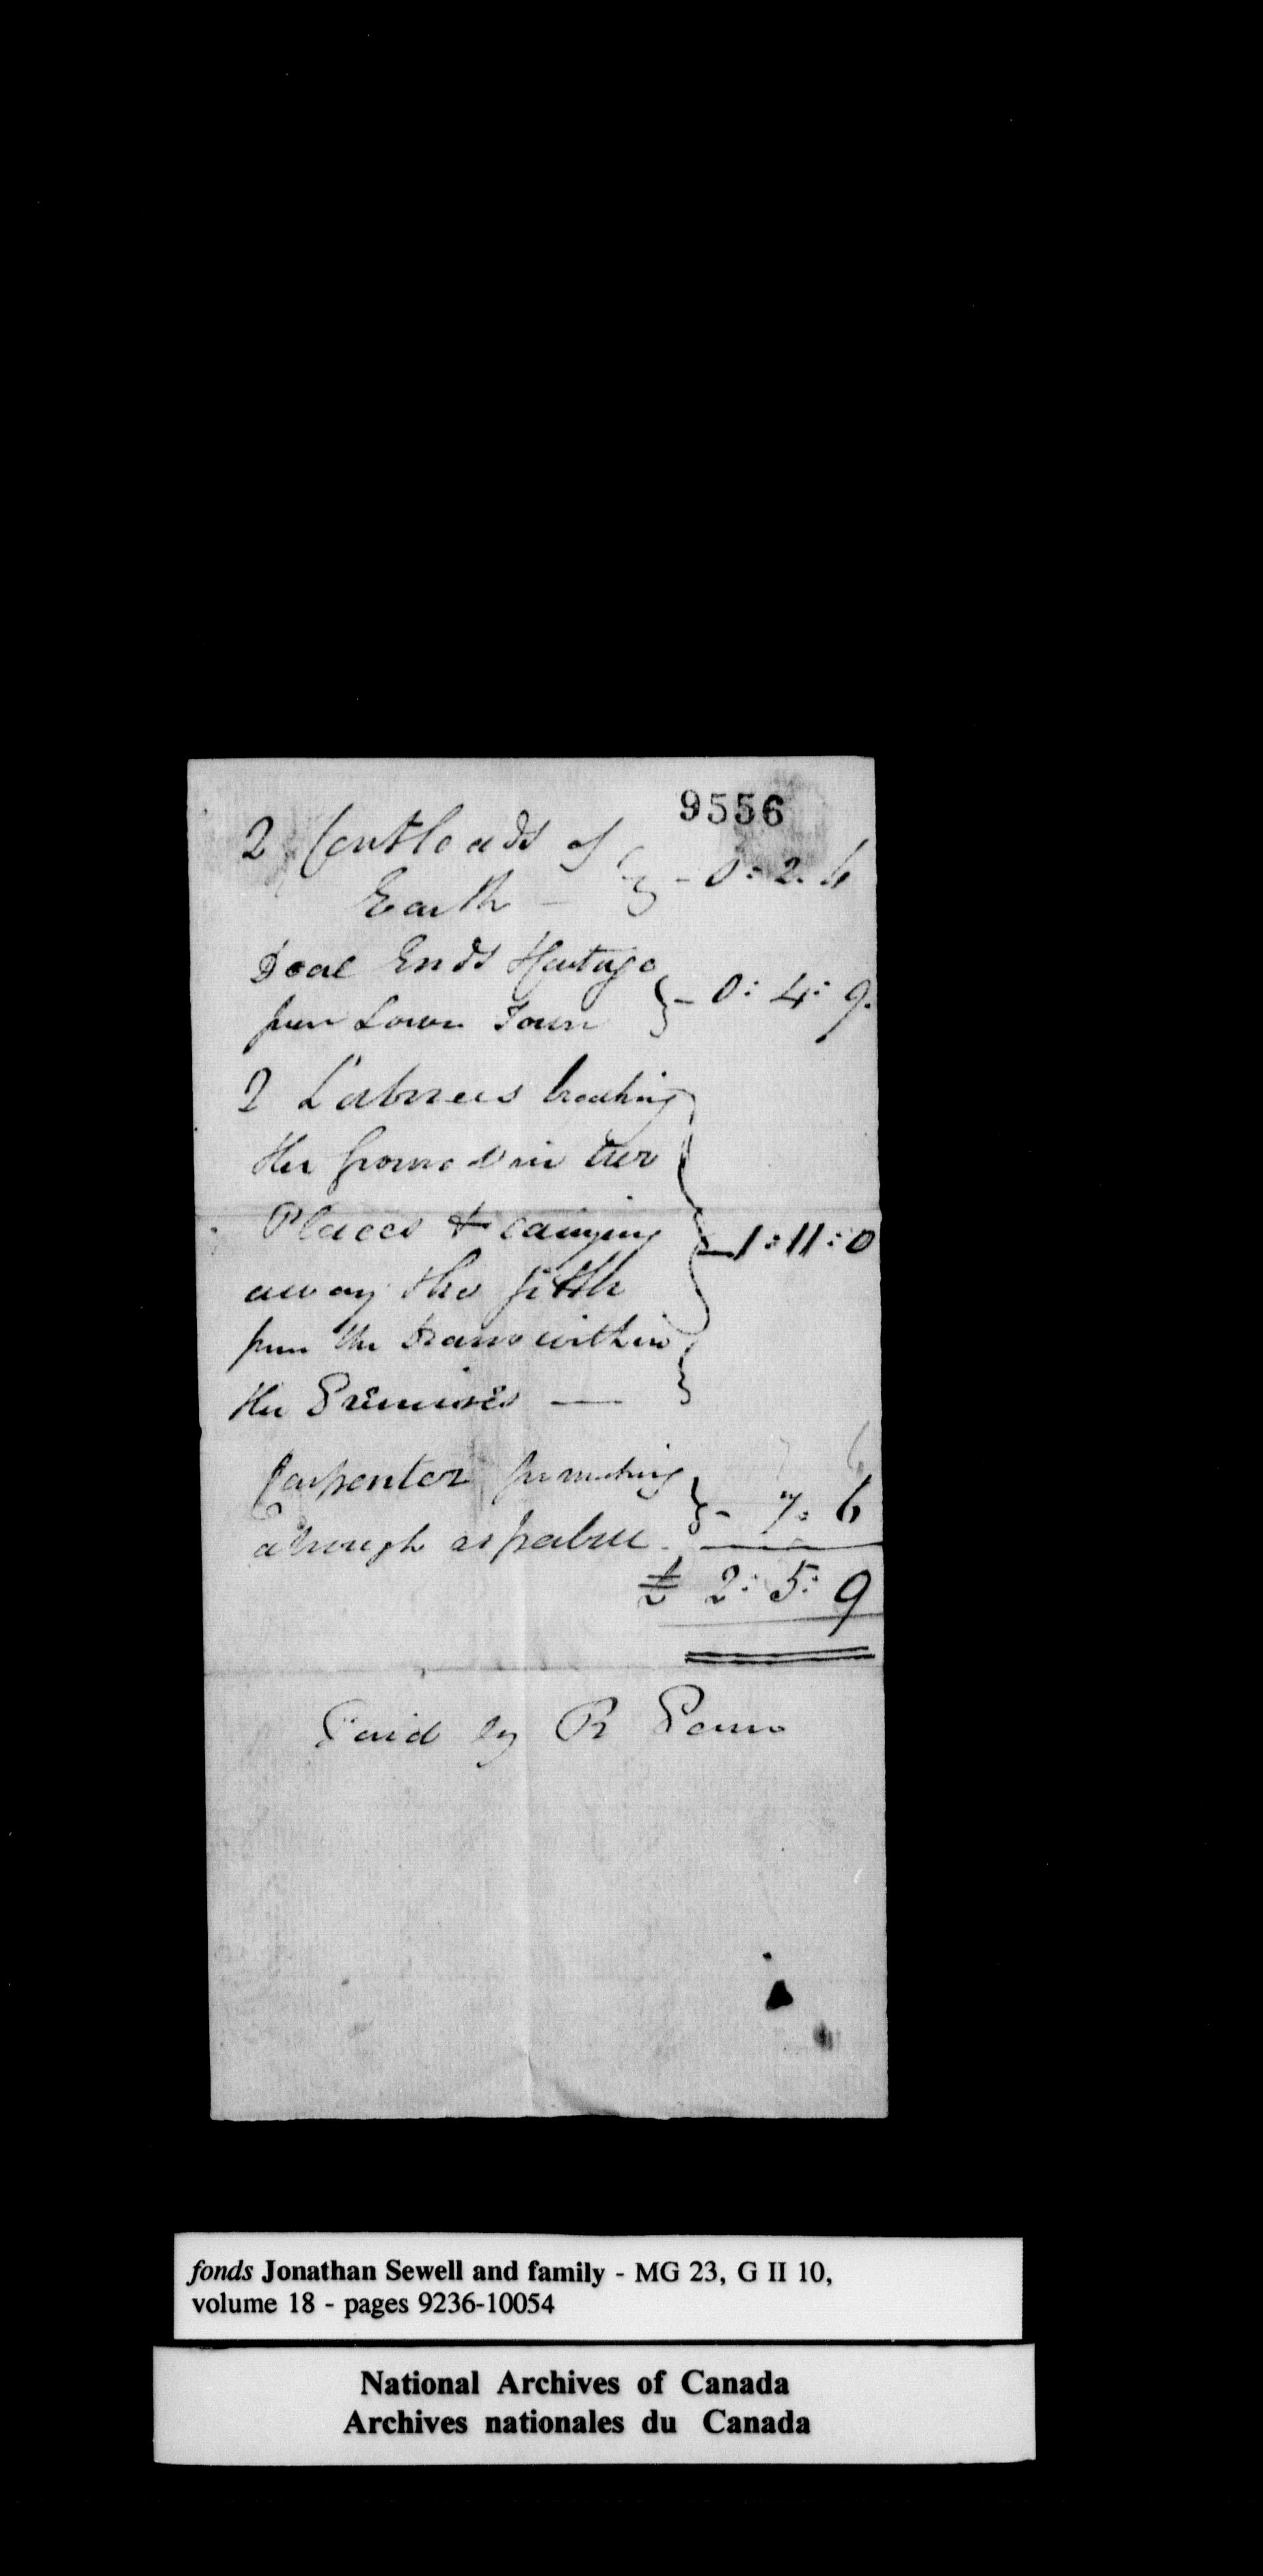 9556
2 Cartloads of } - 0: 2. 6
Earth -
Deal Ends &
from Lower Town } - 0: 4: 9.
2 Labrers breaking
the ground in two
Places & carrying } - 1: 11: 0
away the filth
from the Drains within
the Premises —
Carpenter for making } - 7: 6
a trough as
£ 2: 5: 9
Paid by R
fonds Jonathan Sewell and family - MG 23, G II 10,
volume 18 - pages 9236-10054
National Archives of Canada
Archives nationales du Canada